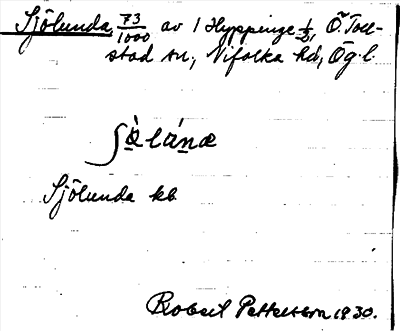 Sjölunda, 73/1000 av 1 Hyppinge 1/3, Ö. Toll-
stad sn., Vifolka hd, Ög. l.
ʃö̀lánœ
Sjölunda kb
Robert Pettersson 1930.